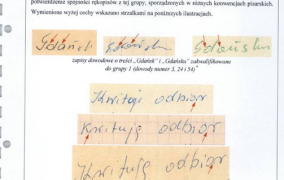 potwierdzenie spójności rękopisów z tej grupy, sporządzonych w różnych konwencjach pisarskich.
Wymienione wyżej cechy wskazano strzałkami na poniższych ilustracjach.
Gdańsk Gdańsku Gdańsku
zapisy dowodowe o treści „Gdańsk” i „Gdańsku” zakwalifikowane
do grupy 1 (dowody numer 3, 24 i 54)
Kwituję odbiór
Kwituję odbiór
Kwituję odbiór